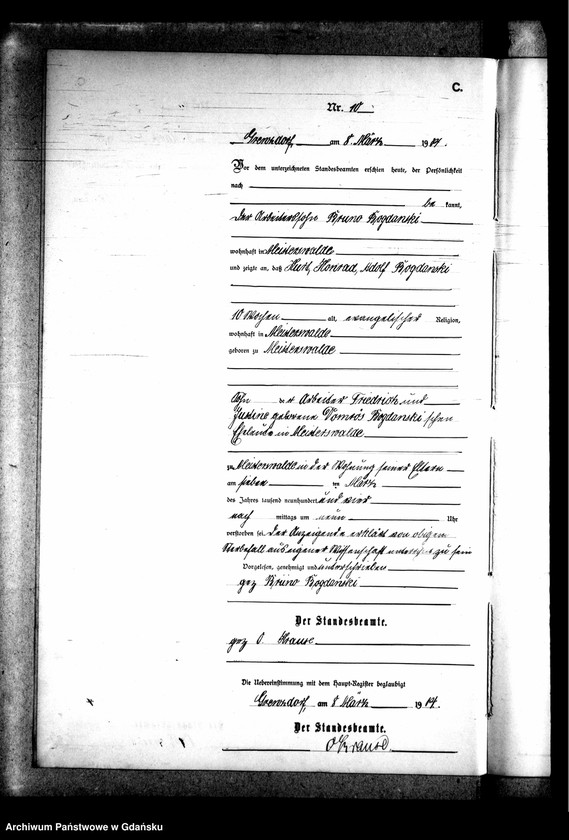 C.
Nr. 10
Grenzdorf, am 8. März 1904.
Vor dem unterzeichneten Standesbeamten erschien heute, der Persönlichkeit
nach
be kannt,
der Arbeitersohn Bruno Bogdanski
wohnhaft in Meisterswalde
und zeigte an, daß Kurt, Konrad, Adolf Bogdanski
10 Wochen alt, evangelischer Religion,
wohnhaft in Meisterswalde
geboren zu Meisterswalde
Sohn der Arbeiter Friedrich und
Justine geborene Bogdanski'schen
Eheleute in Meisterswalde
zu Meisterswalde in der Wohnung seiner Eltern
am sieben ten März
des Jahres tausend neunhundert und vier
nach mittags um neun Uhr
verstorben sei. Der Anzeigende erklärt von obigem
Sterbefall aus eigener Wissenschaft unterrichtet zu sein
Vorgelesen, genehmigt und unterschrieben
gez Bruno Bogdanski
Der Standesbeamte.
gez O. Krause
Die Uebereinstimmung mit dem Haupt-Register beglaubigt
Grenzdorf, am 8 März 1904.
Der Standesbeamte.
O Krause.
Archiwum Państwowe w Gdańsku